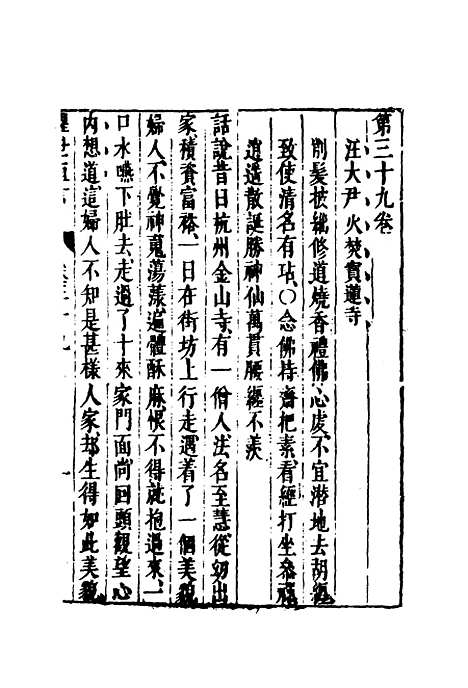 第三十九卷
汪大尹火焚寶蓮寺
削髮披緇修道燒香禮佛心虔不宜潛地去胡纏
致使清名有玷○念佛持齋把素看經打坐參禪
逍遙散誕勝神仙萬貫腰纏不羨
話說昔日杭州金山寺有一僧人法名至慧從幼出
家積資富裕一日在街坊上行走遇着了一個美貌
婦人不覺神䰟蕩漾遍體酥麻恨不得就抱過來一
口水嚥下肚去走過了十來家門面尚回頭觀望心
內想道這婦人不知是甚樣人家却生得如此美貌